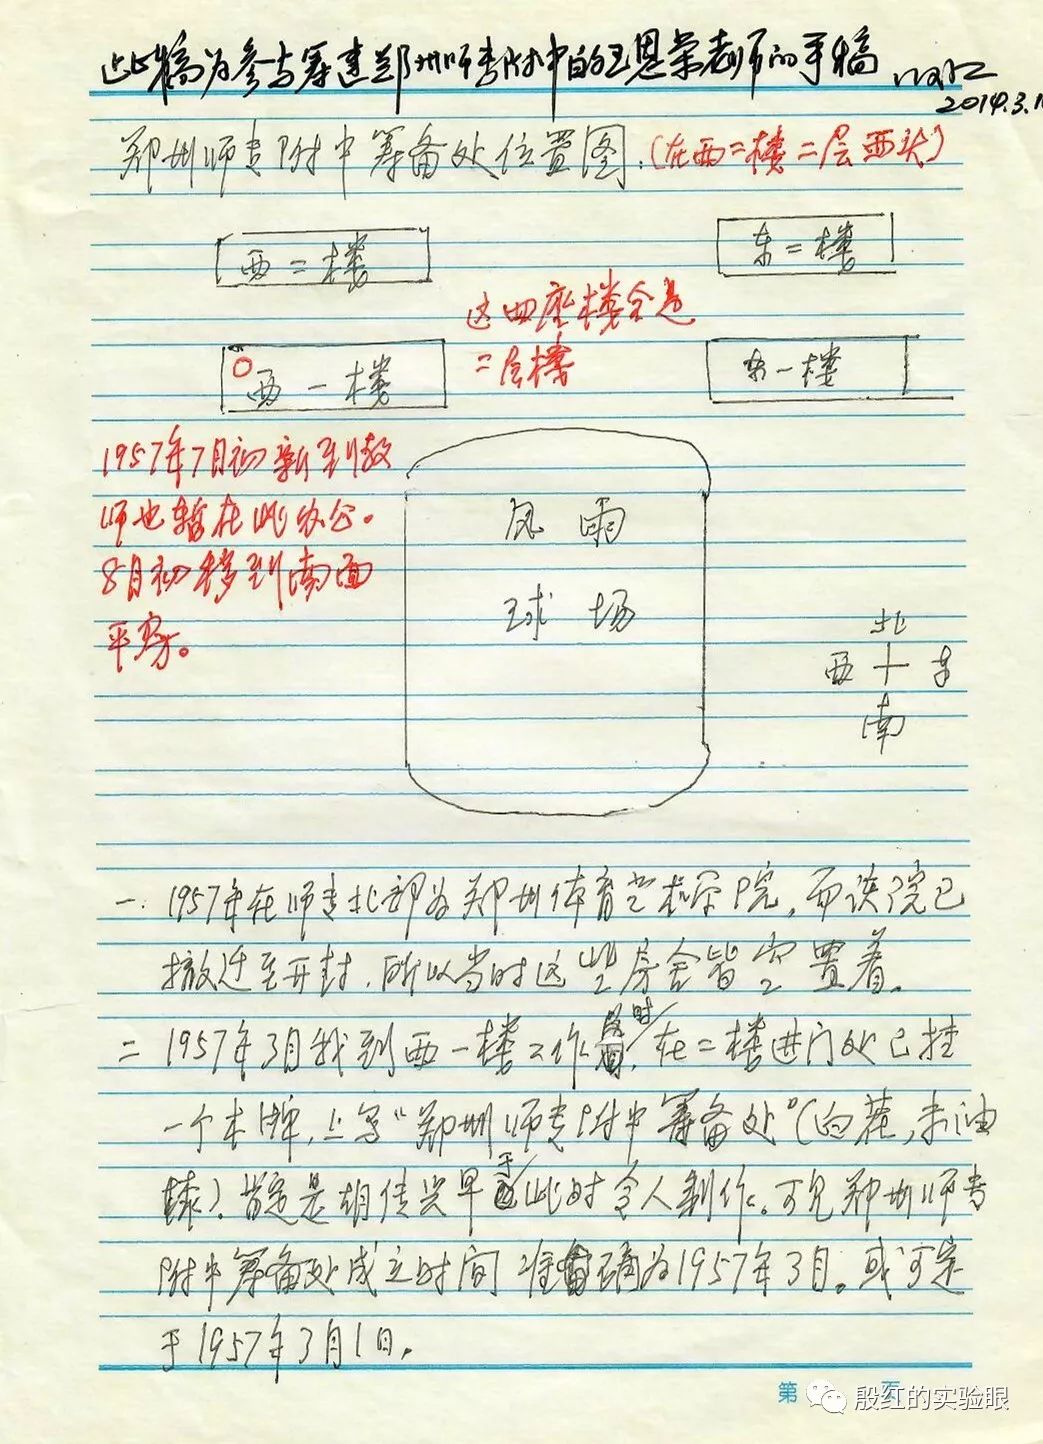 此稿为参与筹建郑州师专附中的王恩荣老师的手稿
2014.3.1
郑州师专附中筹备处位置图.(在西二楼二层西头)
西二楼
东二楼
这四座楼全是
二层楼
西一楼
东一楼
1957年7月初新到教
师也暂在此办公。
8月初移到南面
平房。
风雨
球场
北
西 东
南
一.1957年在师专北部为郑州体育艺术学院,而该院已
撤迁至开封.所以当时这些房舍皆空置着。
二 1957年3月我到西一楼工作时,在二楼进门处已挂
一个木牌,上写"郑州师专附中筹备处"(白茬,未油
漆).当是胡传兴早于此时令人制作。可见郑州师专
附中筹备处成立时间准确为1957年3月。或可定
于1957年3月1日.
第 页
殷红的实验眼